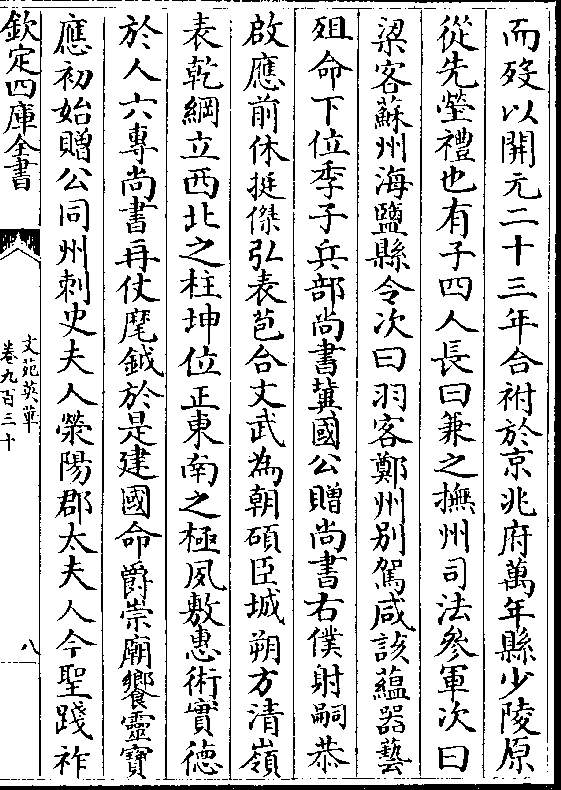 而歿以開元二十三年合祔於京兆府萬年縣少陵原
從先塋禮也有子四人長曰兼之撫州司法參軍次曰
梁客蘇州海鹽縣令次曰羽客鄭州别駕咸該蘊器藝
殂命下位季子兵部尚書冀國公贈尚書右僕射嗣恭
啟應前休挺傑弘表苞合文武為朝碩臣城朔方清嶺
表乾綱立西北之柱坤位正東南之極夙敷惠術實德
於人六專尚書再仗麾鉞於是建國命爵崇廟饗靈寶
應初始贈公同州刺史夫人滎陽郡太夫人今聖踐祚
欽定四庫全書
文苑英華
卷九百三十
八